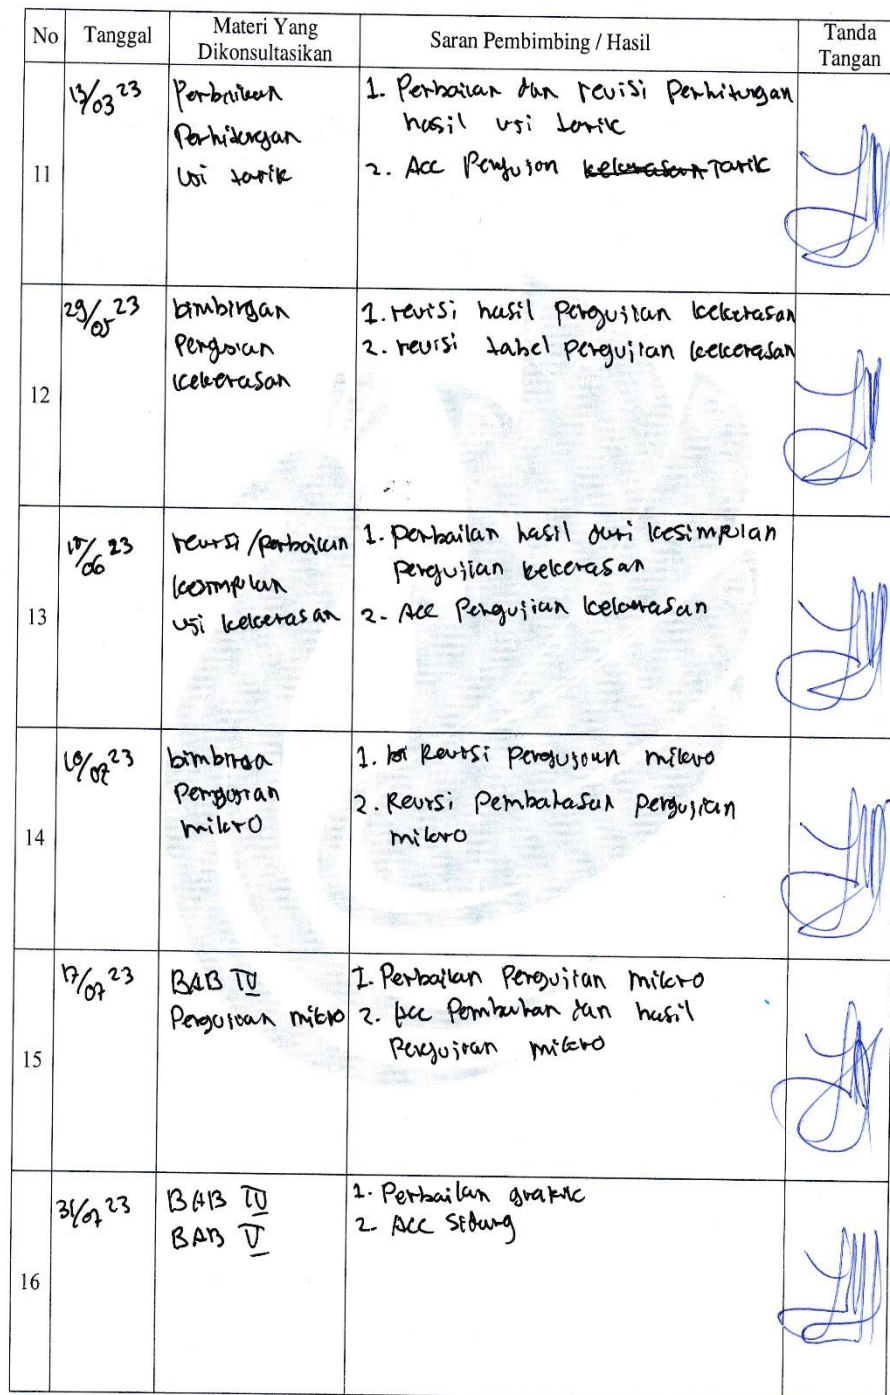 No Tanggal Materi Yang Dikonsultasikan Saran Pembimbing / Hasil Tanda Tangan
11
13/03 23
Perbaikan
Perhitungan
Uji tarik
1. Perbaikan dan revisi Perhitungan
hasil uji tarik
2. Acc Pengujian kekerasan Tarik
12
29/05 23
bimbingan
Pengujian
kekerasan
1. revisi hasil Pengujian kekerasan
2. revisi tabel pengujian kekerasan
13
/06 23
revisi/perbaikan
kesimpulan
uji kekerasan
1. perbaikan hasil dari kesimpulan
pengujian kekerasan
2. Acc Pengujian kekerasan
14
10/07 23
bimbinga
Pengujian
mikro
1. Revisi pengujian mikro
2. Revisi Pembahasan pengujian
mikro
15
17/07 23
BAB IV
Pengujian mikro
1. Perbaikan Pengujian mikro
2. Acc Pembahan dan hasil
Pengujian mikro
16
31/07 23
BAB IV
BAB V
1. Perbaikan grafik
2. Acc Sidang